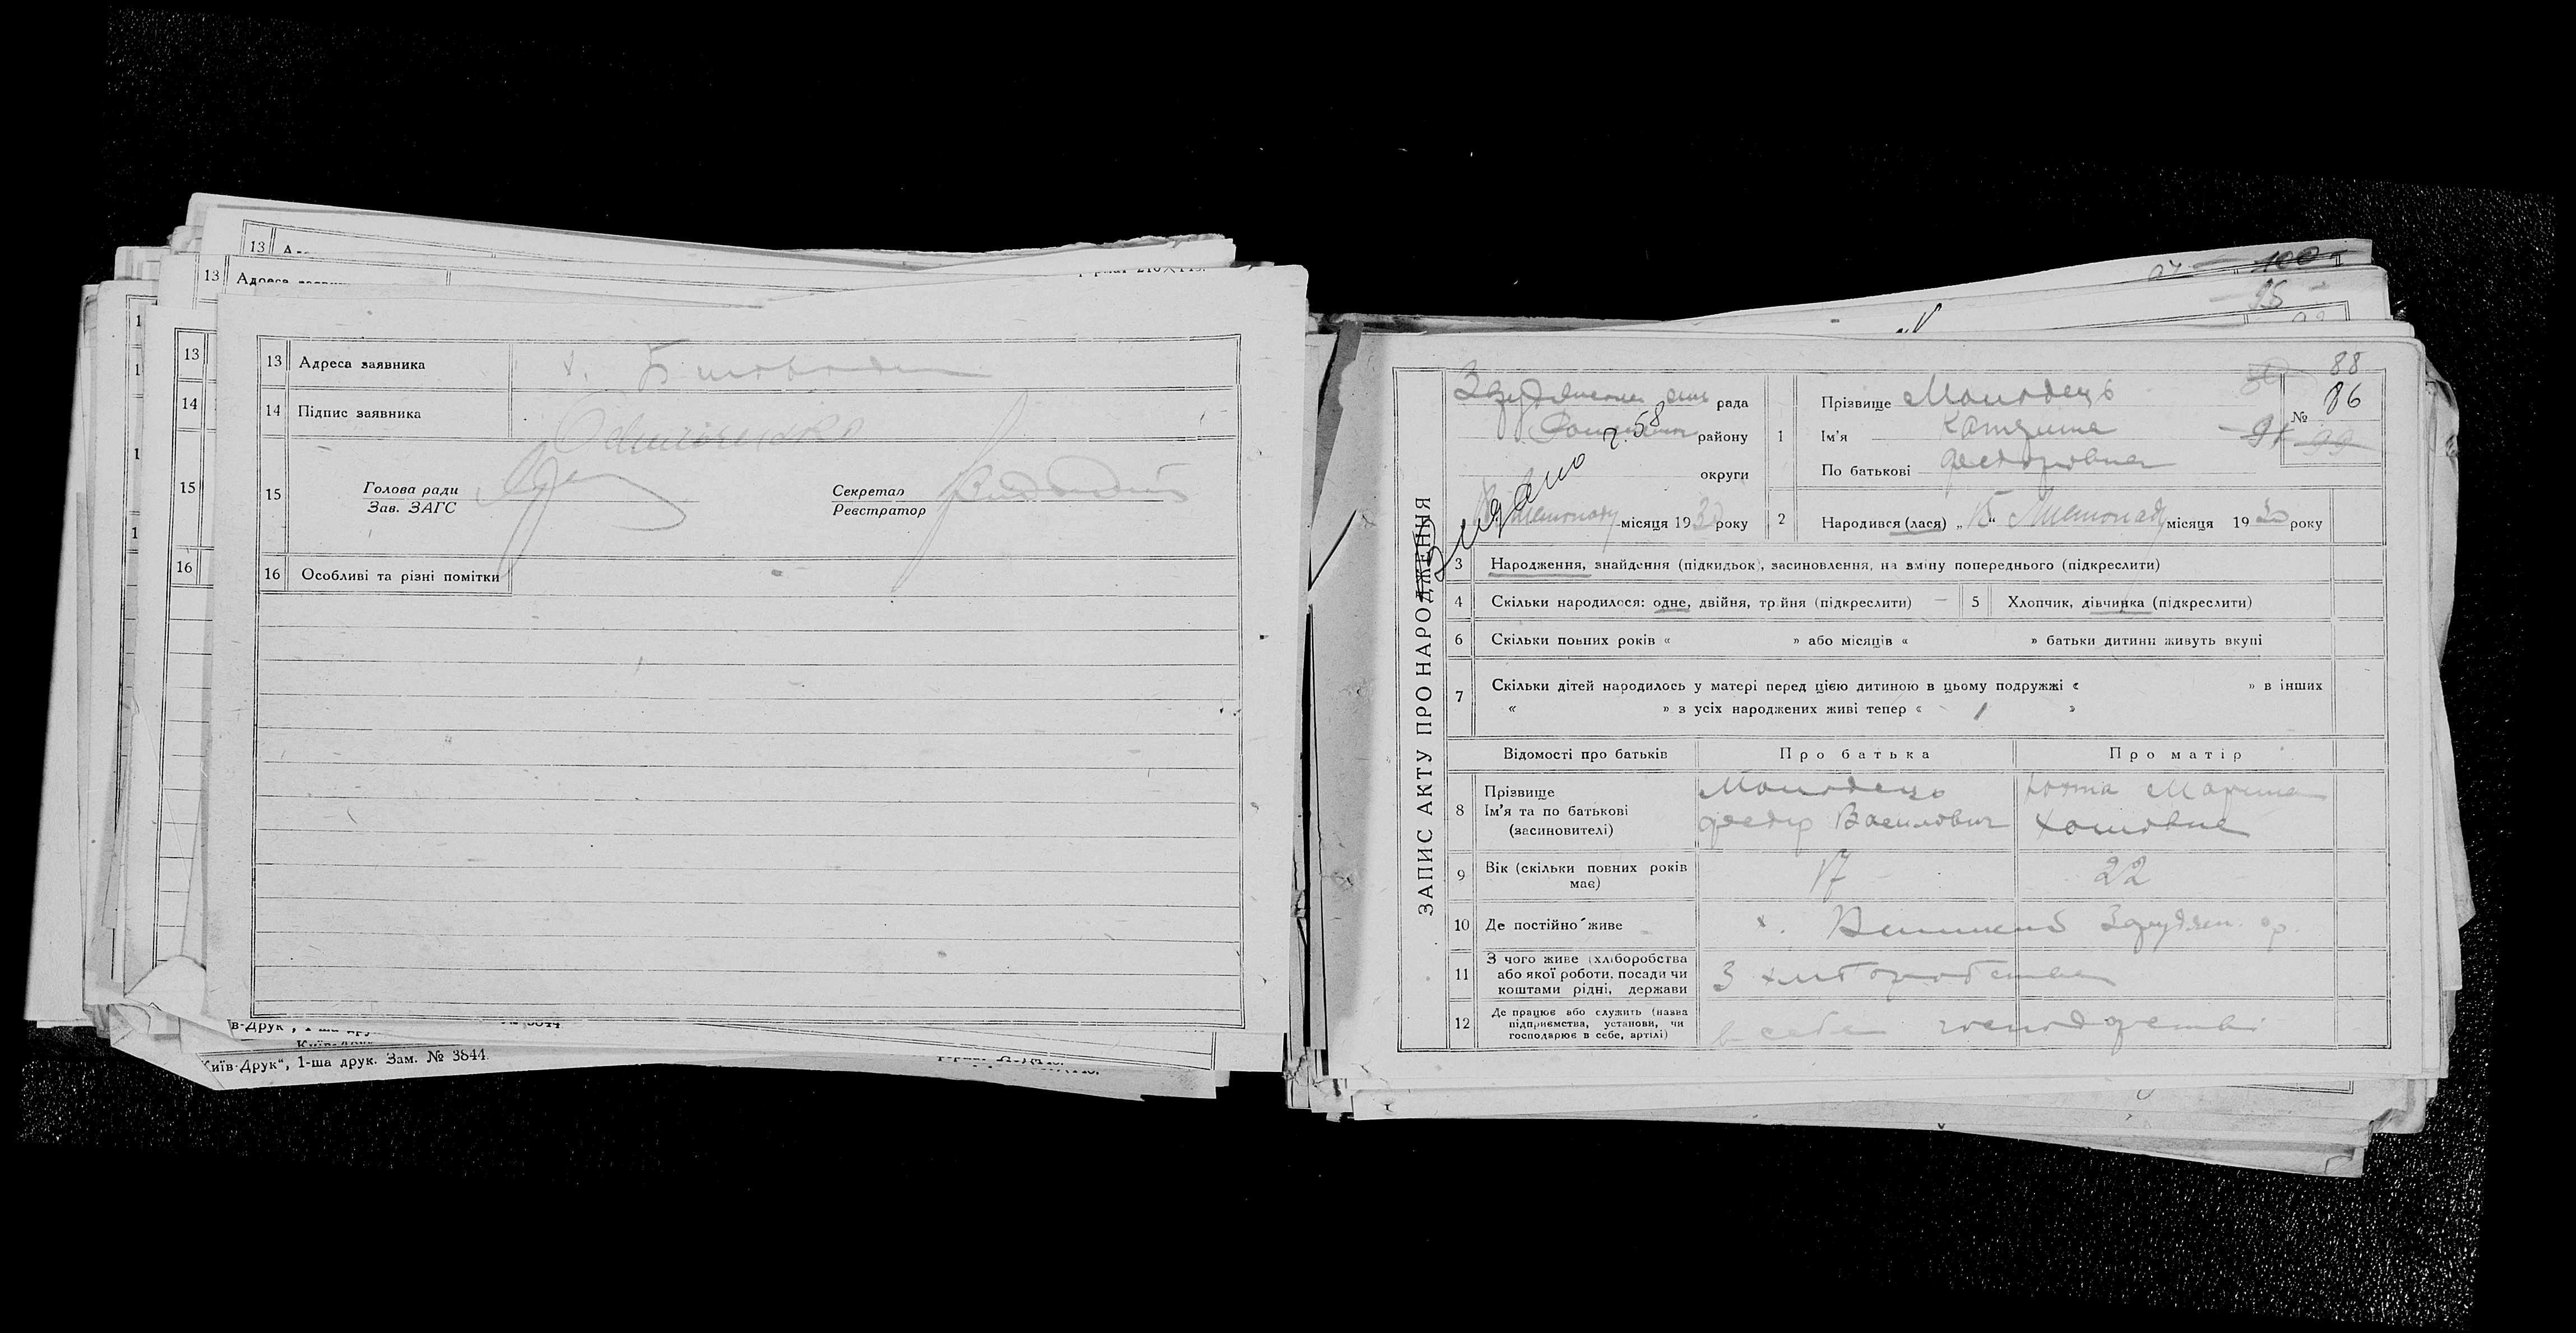 13
А
13
Адреса
13
14
15
16
13 Адреса заявника х.
14 Підпис заявника
15 Голова ради
Зав. ЗАГС
Секретар
Реєстратор
16 Особливі та різні помітки
Київ-Друк“, 1-ша друк. Зам. № 3844.
100
95
88
ЗАПИС АКТУ ПРО НАРОДЖЕННЯ
рада
району
округи
Листопаду місяця 1930 року
видано 2.58
1 Прізвище Молодець
Ім'я Катерина
По батькові Федоровна
№ 86
91 99
2 Народився (лася) „15“ Листопаду місяця 1930 року
3 Народження, знайдення (підкидьок), засиновлення, на зміну попереднього (підкреслити)
4 Скільки народилося: одне, двійня, трійня (підкреслити)
5 Хлопчик, дівчинка (підкреслити)
6 Скільки повних років « » або місяців « » батьки дитини живуть вкупі
7 Скільки дітей народилось у матері перед цією дитиною в цьому подружжі « » в інших
« » з усіх народжених живі тепер « 1 »
Відомості про батьків Про батька Про матір
8 Прізвище
Ім'я та по батькові
(засиновителі)
Молодець
Федір Василович
Марина
9 Вік (скільки повних років
має)
17 22
10 Де постійно живе х.
11 З чого живе (хліборобства
або якої роботи, посади чи
коштами рідні, держави
З хліборобства
12 Де працює або служить (назва
підприємства, установи, чи
господарює в себе, артілі)
в себе господарстві